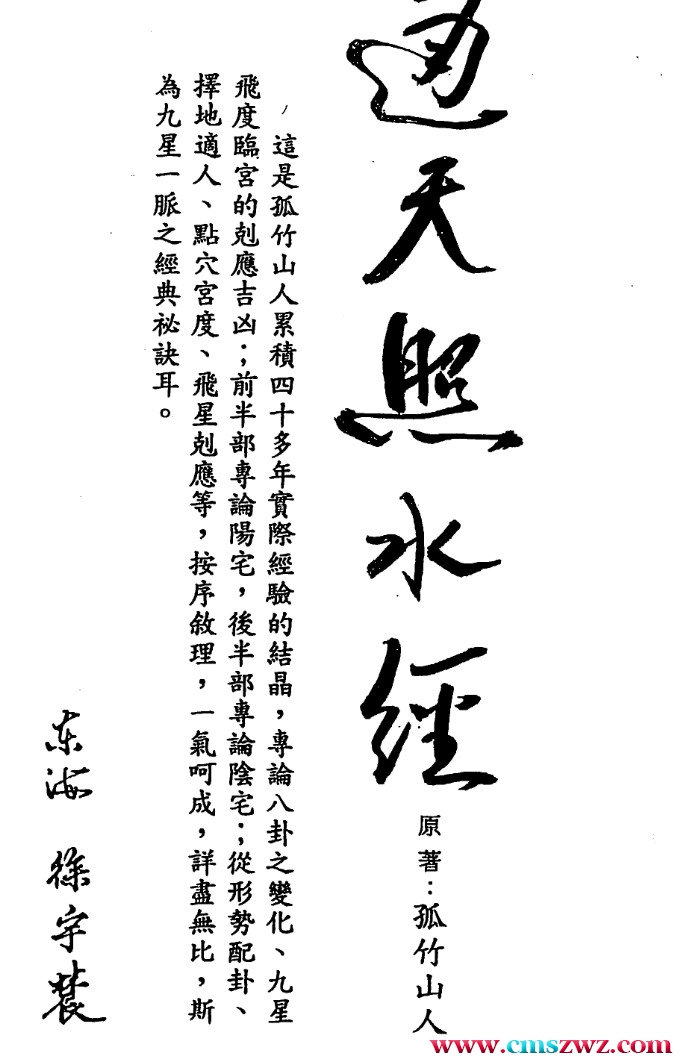 通天照水經
原著：孤竹山人
這是孤竹山人累積四十多年實際經驗的結晶，專論八卦之變化、九星
飛度臨宮的剋應吉凶；前半部專論陽宅，後半部專論陰宅；從形勢配卦、
擇地適人、點穴宮度、飛星剋應等，按序敘理，一氣呵成，詳盡無比，斯
為九星一脈之經典祕訣耳。
东海 徐宇
www.cmszwz.com